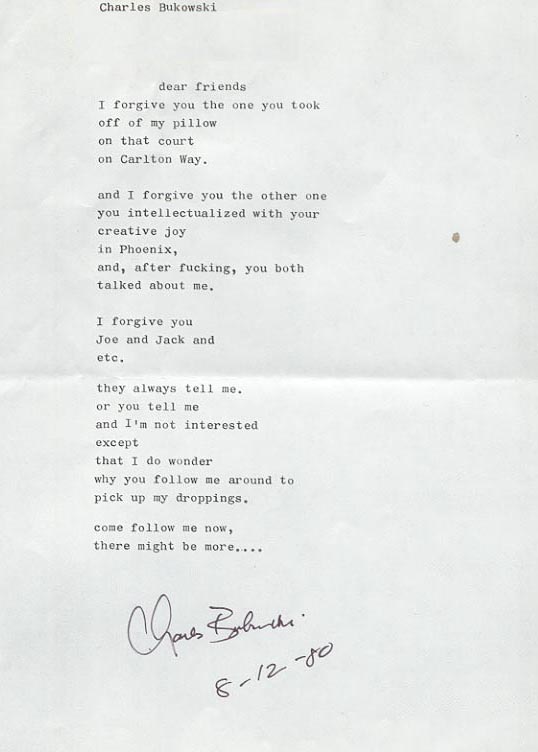 Charles Bukowski
dear friends
I forgive you the one you took
off of my pillow
on that court
on Carlton Way.
and I forgive you the other one
you intellectualized with your
creative joy
in Phoenix,
and, after fucking, you both
talked about me.
I forgive you
Joe and Jack and
etc.
they always tell me.
or you tell me
and I'm not interested
except
that I do wonder
why you follow me around to
pick up my droppings.
come follow me now,
there might be more....
Charles Bukowski
8-12-80